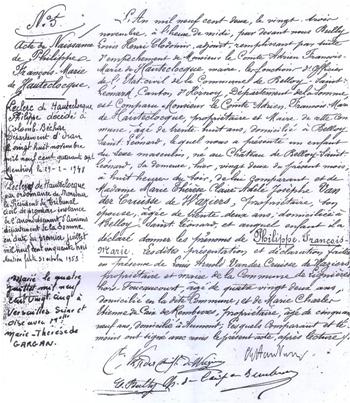 N° 5
Acte de Naissance
de Philippe
François Marie
de Hauteclocque
Leclerc de Hauteclocque
Philippe décédé à
Colomb-Béchar
Département d'Oran
le vingt huit novembre
mil neuf cent quarante sept
Mention faite 19-2-1948
Leclerc de Hauteclocque
par ordonnance de Monsieur
le Président du Tribunal
civil de première instance
de l'arrondissement d'Amiens
département de la Somme
en date du premier juillet
mil neuf cent cinquante trois
Mention faite 1953
Marié le quatre
juillet mil neuf
cent vingt cinq à
Versailles Seine et
Oise avec
Marie-Thérèse de
GARGAN.
L'An mil neuf cent deux, le vingt trois
novembre, à l'heure de midi, par devant nous Bulhy
Louis Henri Clodomir, adjoint, remplissant par suite
d'empêchement de Monsieur le Comte Adrien François
Marie de Hauteclocque maire, les fonctions d'officier
de l'Etat civil de la Commune de Belloy Saint
Léonard, Canton d'Hornoy, Département de la Somme,
est Comparu Monsieur le Comte Adrien, François Marie
de Hauteclocque, propriétaire et Maire de cette Com
mune, âgé de trente huit ans, domicilié à Belloy
Saint Léonard, lequel nous a présenté un enfant
du sexe masculin, né au Château de Belloy Saint
Léonard, sa demeure, hier, vingt deux à
huit heures du soir, de lui comparant et de
Madame Marie Thérèse Claire Adèle Josèphe Van
der Cruisse de Waziers, propriétaire, son
épouse, âgée de trente deux ans, domiciliée à
Belloy Saint Léonard, et auquel enfant il a
déclaré donner les prénoms de Philippe François
Marie. Lesdites présentation et déclaration faites
en présence de
propriétaire et maire de la Commune de Lignières
hors Foucaucourt, âgé de quatre vingt deux ans,
domicilié en la dite Commune; et de Marie Charles
Etienne de propriétaire, âgé de cinquante
neuf ans, domicilié à Aumont, lesquels Comparant et té
moins ont signé avec nous le présent acte, après lecture